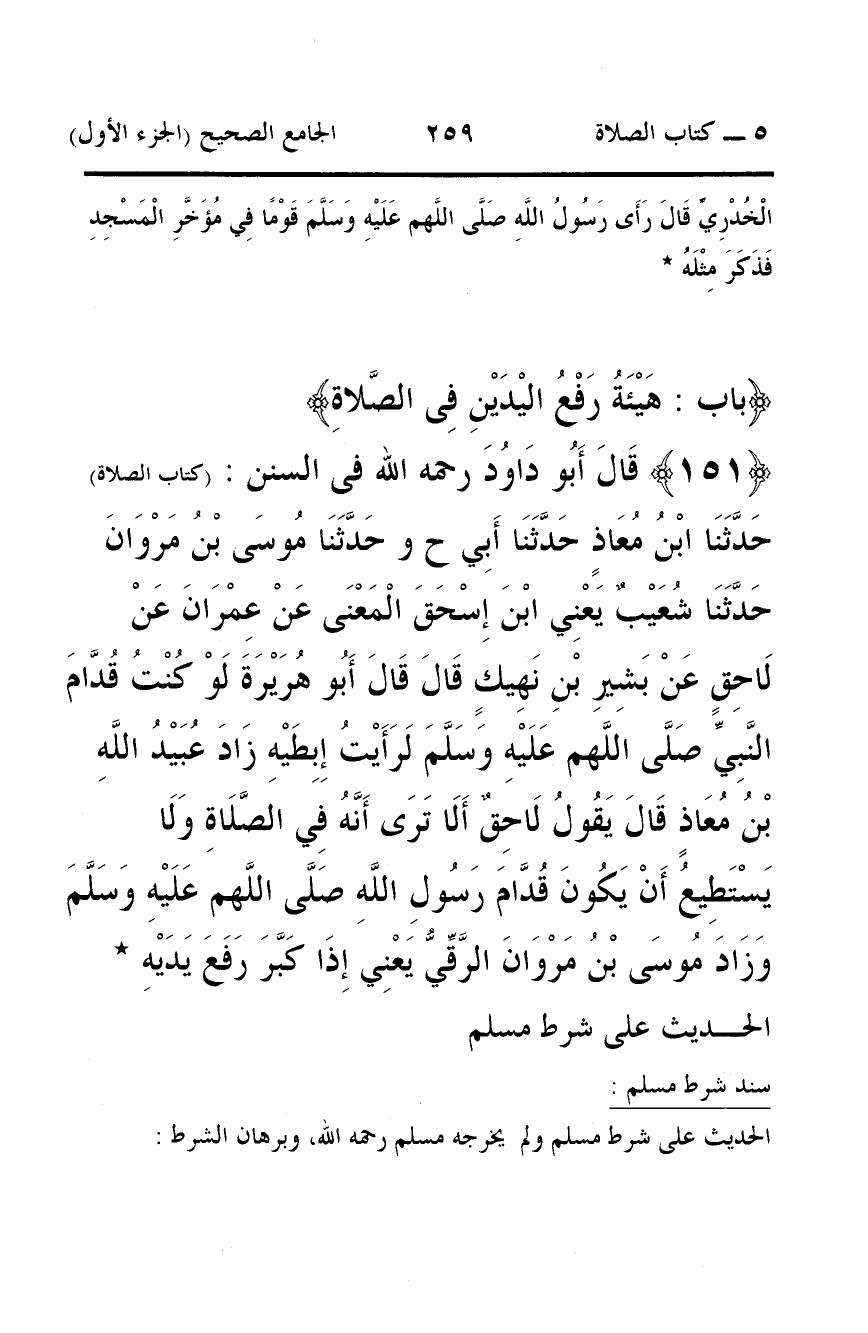 ٥ ــ كتاب الصلاة ٢٥٩ الجامع الصحيح (الجزء الأول)
الْخُدْرِيِّ قَالَ رَأَى رَسُولُ اللَّهِ صَلَّى اللَّهم عَلَيْهِ وَسَلَّمَ قَوْمًا فِي مُؤَخَّرِ الْمَسْجِدِ
فَذَكَرَ مِثْلَهُ *
﴿باب : هَيْئَةُ رَفْعُ اليْدَيْنِ فِى الصَّلاةِ﴾
﴿١٥١﴾ قَالَ أَبُو دَاوُدَ رحمه الله فى السنن : (كتاب الصلاة)
حَدَّثَنَا ابْنُ مُعَاذٍ حَدَّثَنَا أَبِي ح و حَدَّثَنَا مُوسَى بْنُ مَرْوَانَ
حَدَّثَنَا شُعَيْبٌ يَعْنِي ابْنَ إِسْحَقَ الْمَعْنَى عَنْ عِمْرَانَ عَنْ
لَاحِقٍ عَنْ بَشِيرِ بْنِ نَهِيكٍ قَالَ قَالَ أَبُو هُرَيْرَةَ لَوْ كُنْتُ قُدَّامَ
النَّبِيِّ صَلَّى اللَّهم عَلَيْهِ وَسَلَّمَ لَرَأَيْتُ إِبِطَيْهِ زَادَ عُبَيْدُ اللَّهِ
بْنُ مُعَاذٍ قَالَ يَقُولُ لَاحِقٌ أَلَا تَرَى أَنَّهُ فِي الصَّلَاةِ وَلَا
يَسْتَطِيعُ أَنْ يَكُونَ قُدَّامَ رَسُولِ اللَّهِ صَلَّى اللَّهم عَلَيْهِ وَسَلَّمَ
وَزَادَ مُوسَى بْنُ مَرْوَانَ الرَّقِّيُّ يَعْنِي إِذَا كَبَّرَ رَفَعَ يَدَيْهِ *
الحـــديث على شرط مسلم
سند شرط مسلم :
الحديث على شرط مسلم ولم يخرجه مسلم رحمه الله، وبرهان الشرط :